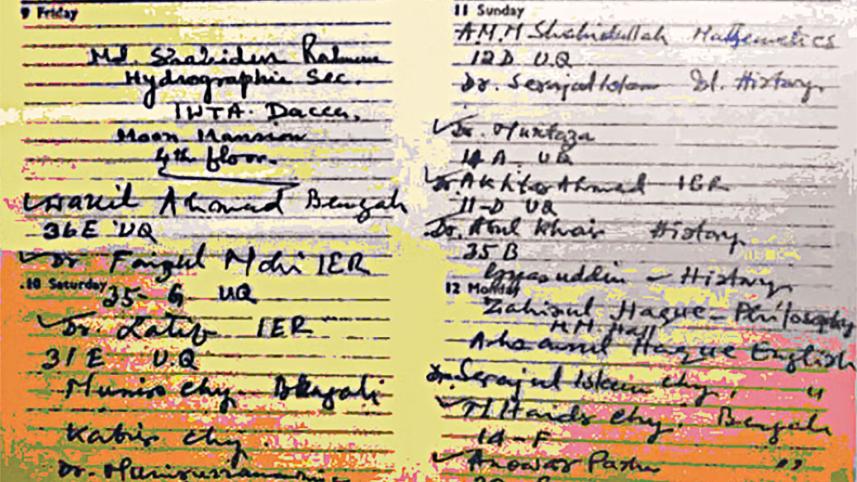 9 Friday
Md. Shahidur Rahman
Hydrographic Sec.
IWTA. Dacca.
Moon Mansion
4th floor.
✓ Wakil Ahmad Bengali
36E UQ
✓ Dr Faizul Mohi IER
10 Saturday
35-G UQ
✓ Dr Latif IER
31E U.Q
Munir Chy Bengali
Kabir Chy
Dr. Moniruzzaman
11 Sunday
A.M.M Shahidullah Mathematics
12D U.Q
Dr. Serajul Islam Isl. History,
✓ Dr. Murtaza
14 A. UQ
Dr. Akhter Ahmad IER
11-D UQ
Dr. Abul Khair History
35 B
Gyasuddin – History,
12 Monday
Zahirul Haque – Philosophy
M.M Hall
Ahsanul Haque English
Dr. Serajul Islam Chy, "
✓ M Haider Chy. Bengali
14-F
✓ Anowar Pasha "